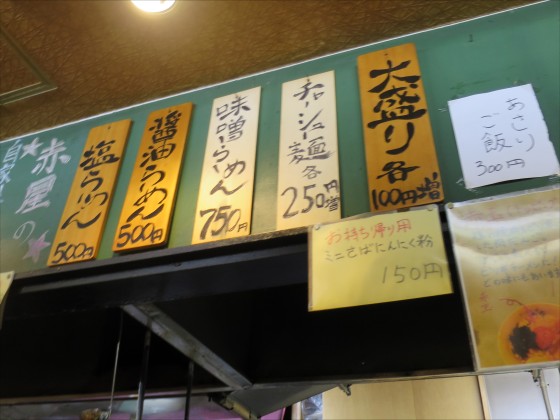 赤屋の
塩らーめん
500円
醤油らーめん
500円
味噌らーめん
750円
チャーシュー麺各
250円増
大盛り各
100円増
あさり
ご飯
300円
お持ち帰り用
ミニさばにんにく粉
150円